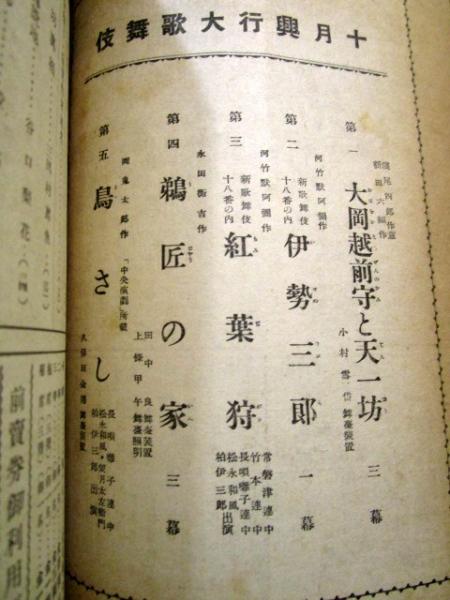 十月興行大歌舞伎
第一 大岡越前守と天一坊 三幕
小村雪岱舞臺装置
河竹默阿彌作
第二 新歌舞伎十八番の内 伊勢三郎 一幕
河竹默阿彌作
第三 新歌舞伎十八番の内 紅葉狩
常磐津連中
竹本連中
長唄囃子連中
松永和風出演
柏伊三郎
永田衡吉作
第四 鵜匠の家 三幕
田中良舞臺装置
上條甲午舞臺照明
岡鬼太郎作
「中央演劇」所載
第五 鳥さし
長唄囃子連中
松永和風・望月太左衞門
柏伊三郎出演
久保田金僊舞臺装置
前賣券御利用